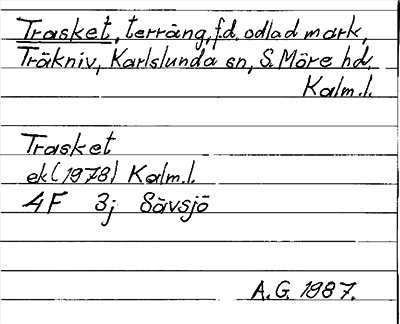 Trasket, terräng, f.d. odlad mark,
Träkniv, Karlslunda sn, S. Möre hd.
Kalm.l.
Trasket
ek (1978) Kalm.l.
4F 3j Sävsjö
A.G. 1987.